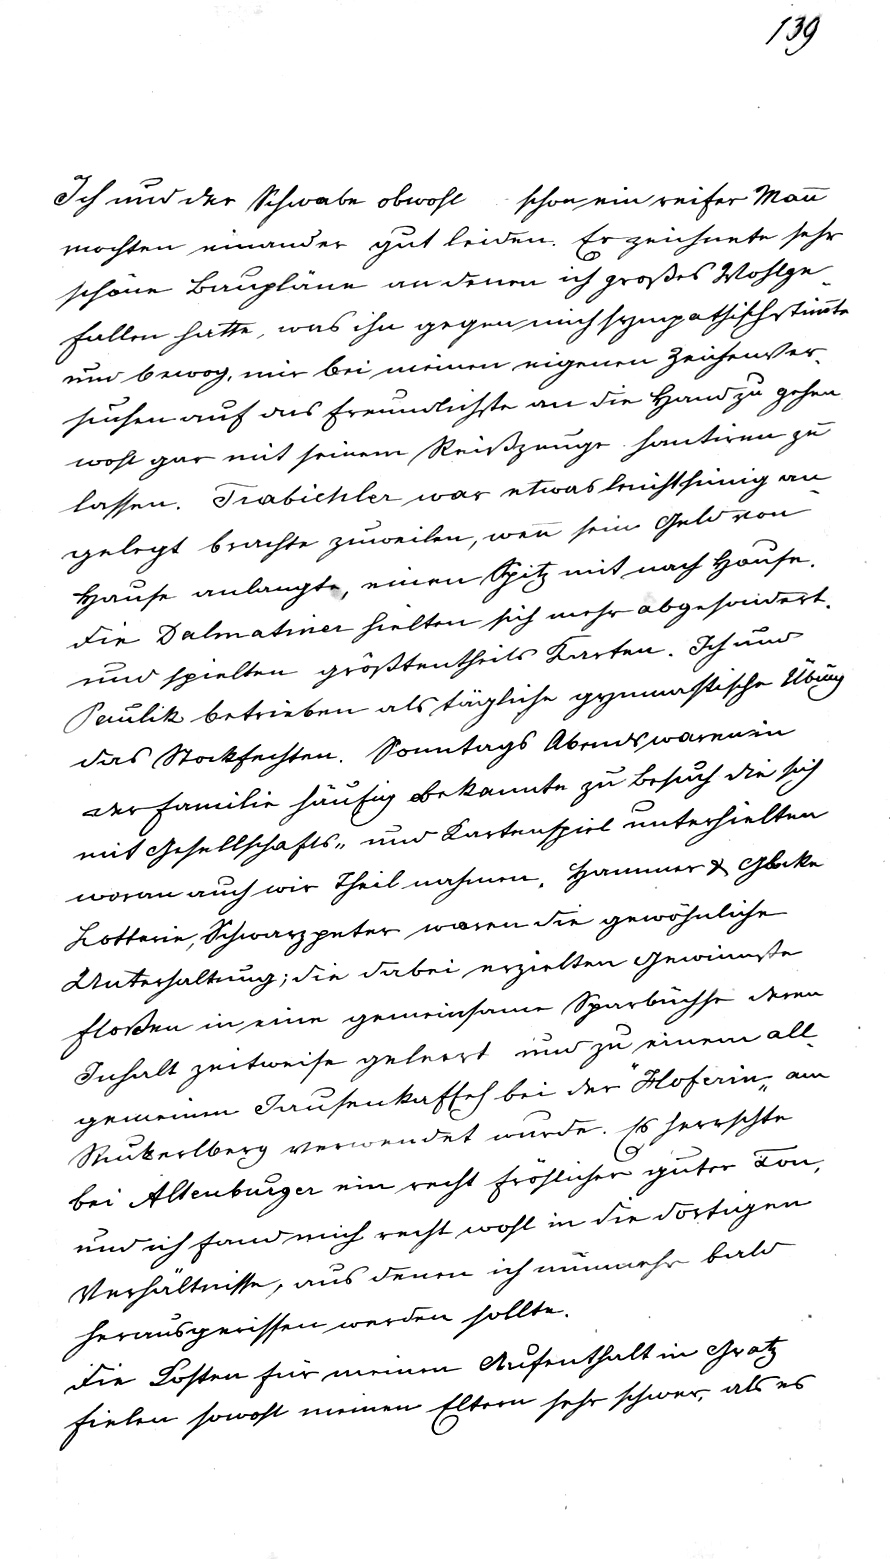 139
Ich und der Schwabe obwohl schon ein reifer Mann̄
mochten einander gut leiden. Er zeichnete sehr
schöne Baupläne an denen ich großes Wohlge-
fallen hatte, was ihn gegen mich sympathisch stim̄te
und bewog, mir bei meinen eigenen Zeichenver-
suchen auf das freundlichste an die Hand zu gehen
wohl gar mit seinem Reißzeuge hantiren zu
lassen. Trabichler war etwas leichtsinnig an-
gelegt brachte zuweilen, wen̄ sein Geld von
Hause anlangte, einen Spitz mit nach Hause.
Die Dalmatiner hielten sich mehr abgesondert.
und spielten größtentheils Karten. Ich und
Paulik betrieben als tägliche gymnastische Übung
das Stockfechten. Sonntags Abends waren in
der Familie häufig Bekannte zu Besuch die sich
mit Gesellschafts- und Kartenspiel unterhielten
woran auch wir Theil nahmen. Hammer & Glocke
Lotterie, Schwarzpeter waren die gewöhnliche
Unterhaltung; die dabei erzielten Gewinnste
floßen in eine gemeinsame Sparbüchse deren
Inhalt zeitweise geleert und zu einem all-
gemeinen Jausenkaffeh bei der "Hoferin" am
Ruckerlberg verwendet wurde. Es herrschte
bei Altenburger ein recht fröhlicher guter Ton,
und ich fand mich recht wohl in die dortigen
Verhältnisse, aus denen ich nunmehr bald
herausgerissen werden sollte.
Die Kosten für meinen Aufenthalt in Gratz
fielen sowohl meinen Eltern sehr schwer, als es